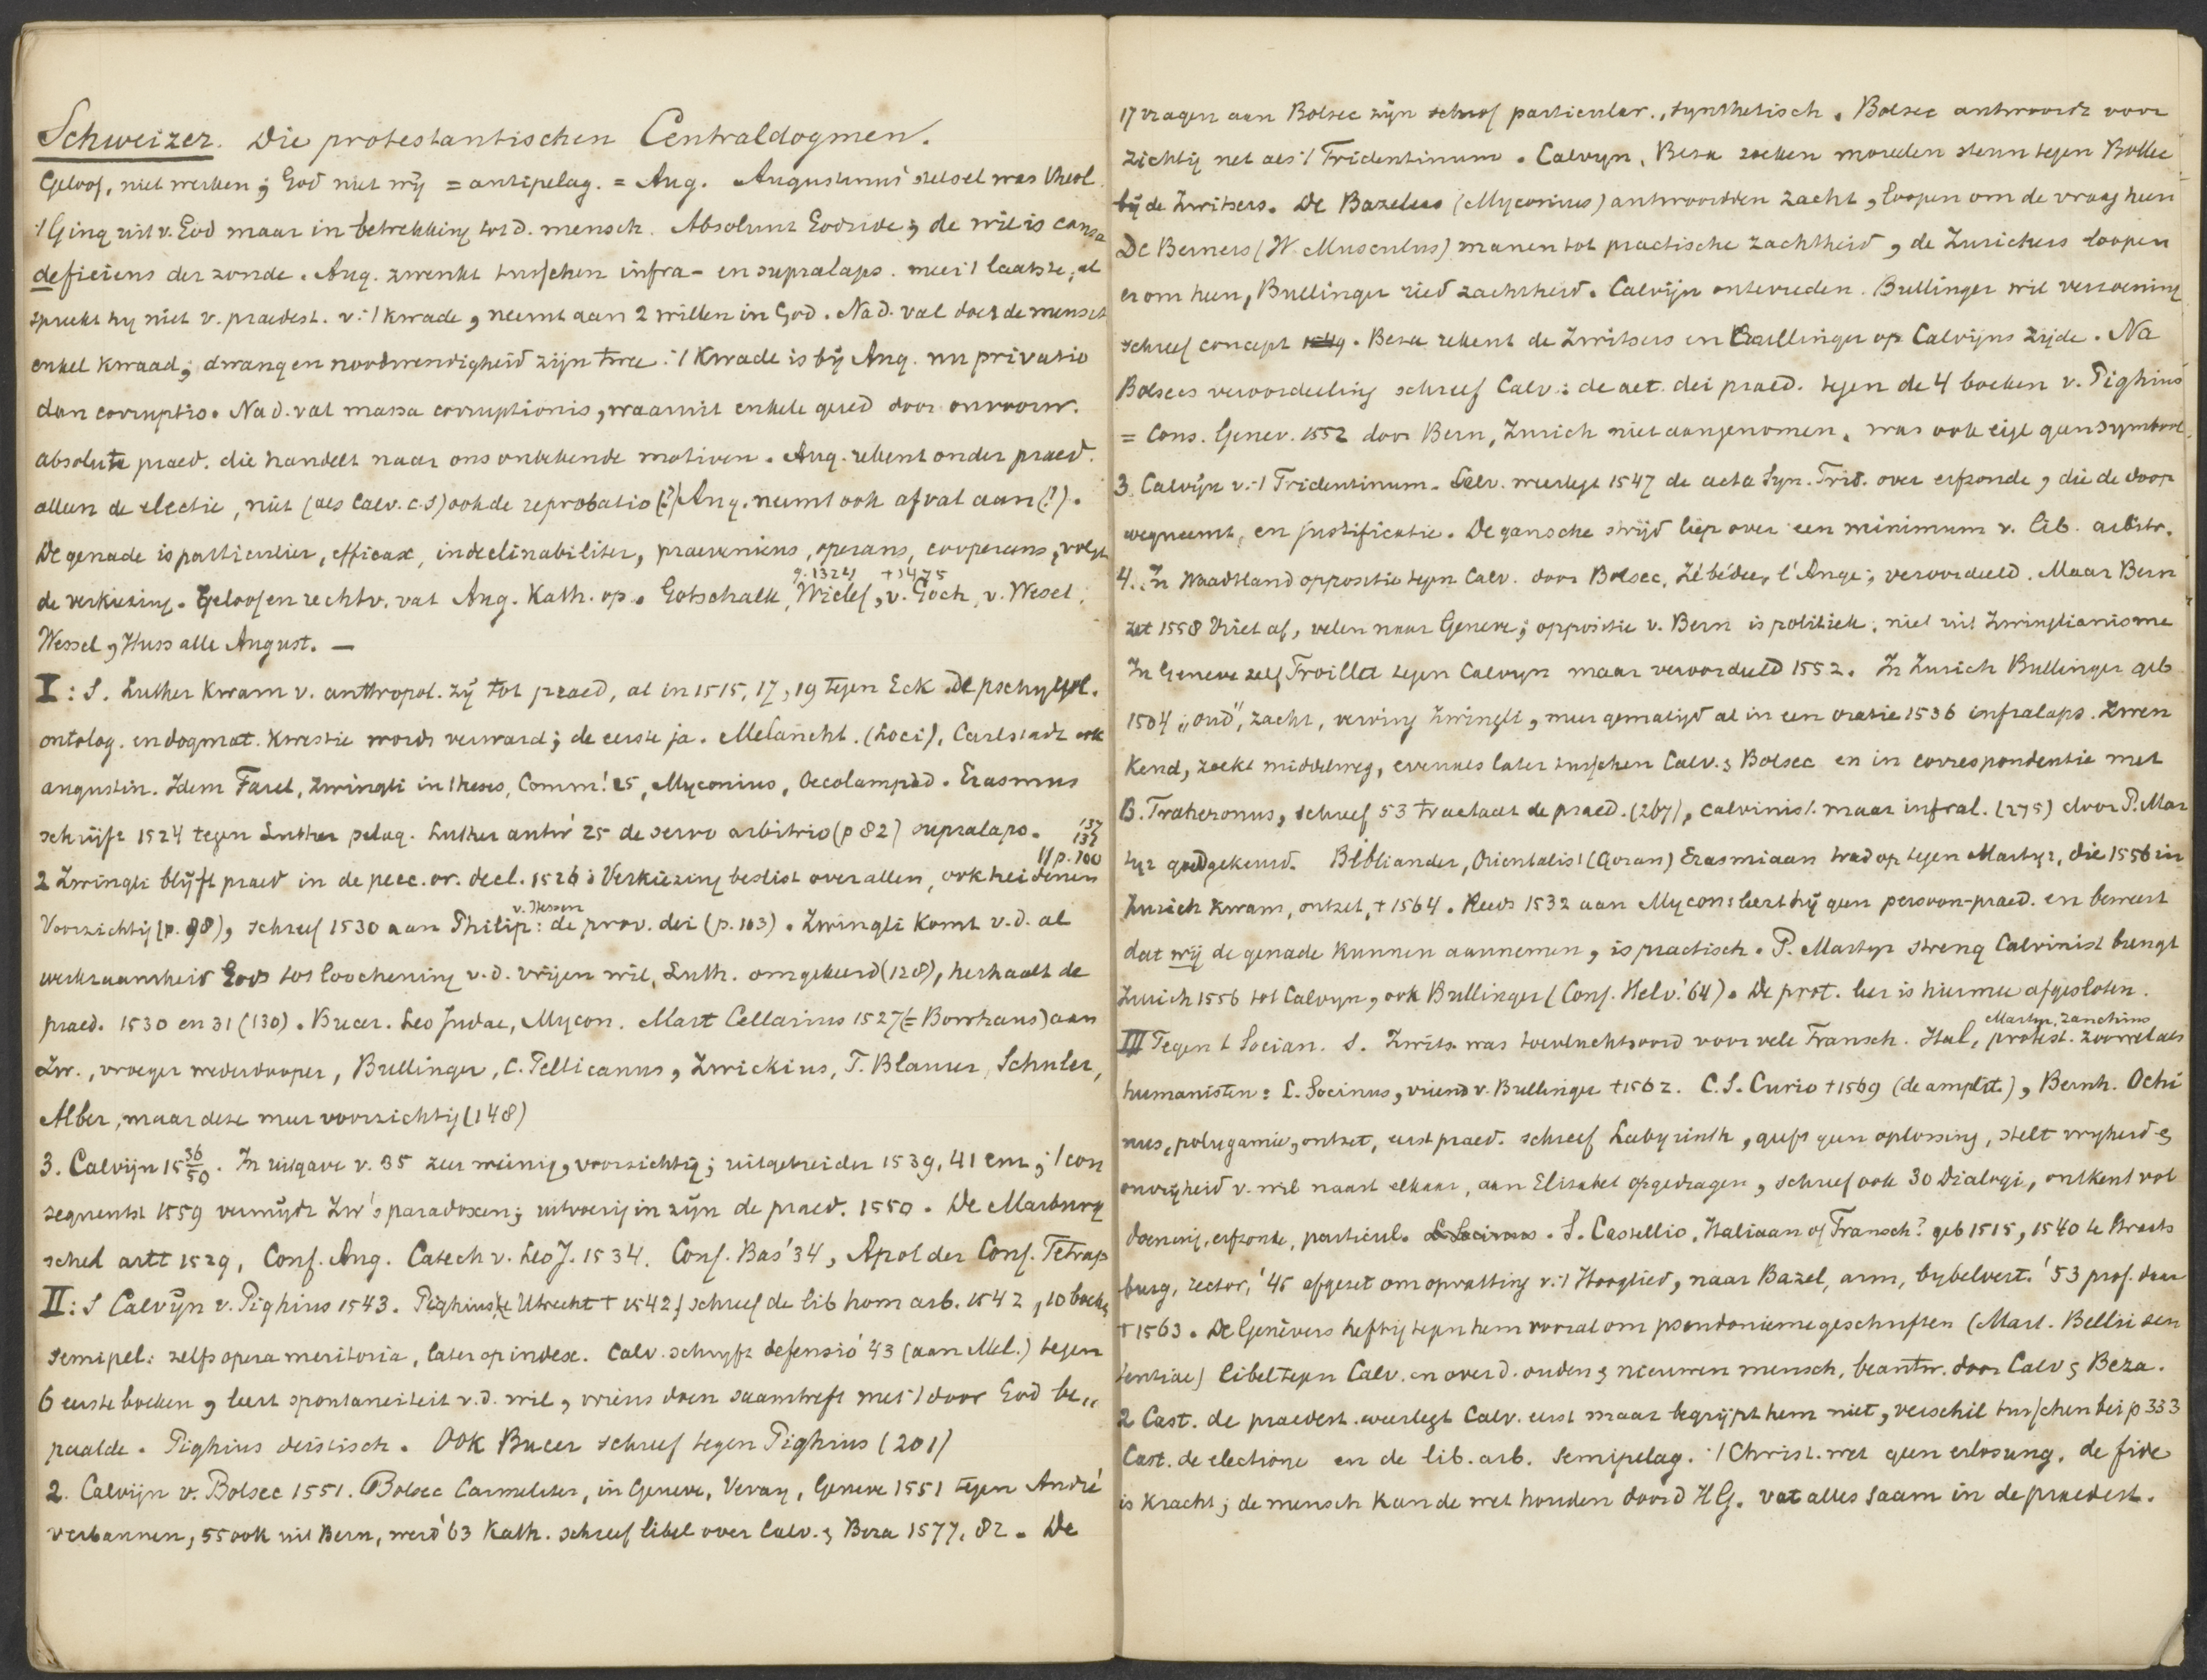 Schweizer. Die protestantischen Centraldogmen.
Geloof, niet werken; God niet wij = antipelag. = Aug. Augustinus' stelsel was theol.
't Ging uit v. God maar in betrekking tot d. mensch. Absolunt Godsidee; de wil is causa
deficiens der zonde. Aug. zwenkt tusschen infra- en supralaps. meer 't laatste, al
spreekt hij niet v. praedest. v. 't kwade, neemt aan 2 willen in God. Na d. val doet de mensch
enkel kwaad; dwang en noodwendigheid zijn twee. 't Kwade is bij Aug. nu privatio
dan corruptio. Na d. val massa corruptionis, waaruit enkele gered door onvoorw.
absolute praed. die handelt naar ons onbekende motieven. Aug. rekent onder praed.
alleen de electie, niet (als Calv. c.s) ook de reprobatio (?) Aug. neemt ook afval aan (?).
De genade is particulier, efficax, indeclinabiliter, praeveniens, operans, cooperans, volgt
de verkiezing. Geloof en rechtv. vat Aug. Kath. op. Gotschalk, Wiclef, g. 1324 v. Goch, +1475 v. Wesel,
Wessel, Huss alle August. —
I: S. Luther kwam v. anthropol. zij tot praed, al in 1515, 17, 19 tegen Eck. De pschygol.
ontolog. en dogmat. kwestie wordt verward; de eerste ja. Melancht. (Loci), Carlstadt ook
augustin. Idem Farel, Zwingli in theses, Comm. '25, Myconius, Oecolampad. Erasmus
schrijft 1524 tegen Luther pelag. Luther antw '25 de servo arbitrio (p 82) supralaps. '37 137
2 Zwingli blijft praed in de pecc. or. decl. 1526: Verkiezing beslist over allen, ook heidenen // p. 100
Voorzichtig (p. 98), schreef 1530 aan Philip: v. Hessen de prov. dei (p. 103). Zwingli komt v. d. al
werkzaamheid Gods tot loochening v. d. vrijen wil, Luth. omgekeerd (128), herhaalt de
praed. 1530 en 31 (130). Bucer. Leo Judae, Mycon. Mart Cellarius 1527 (= Borrhaus) aan
Zw., vroeger wederdooper, Bullinger, C. Pellicanus, Zwickius, T. Blaurer, Schuler,
Alber, maar deze meer voorzichtig (148)
3. Calvijn 15 36/50. In uitgave v. 35 zeer weinig, voorzichtig; uitgebreider 1539, 41 enz; 't con
sequentst 1559 vermijdt Zw's paradoxen; uitvoerig in zijn de praed. 1550. De Marburg
sched artt 1529, Conf. Aug. Catech v. Leo J. 1534. Conf. Bas '34, Apol der Conf. Tetrap
II: S Calvijn v. Pighius 1543. Pighius, te Utrecht + 1542, schreef de lib hom arb. 1542, 10 boeken
semipel: zelfs opera meritoria, later op index. Calv. schrijft defensio '43 (aan Mel.) tegen
6 eerste boeken, leert spontaneiteit v. d. wil, wiens doen saamtreft met 't door God be„
paalde. Pighius deistisch. Ook Bucer schreef tegen Pighius (201)
2. Calvijn v. Bolsec 1551. Bolsec Carmeliter, in Geneve, Veray, Geneve 1551 tegen André
verbannen, 55 ook uit Bern, werd '63 Kath. schreef libel over Calv. & Beza 1577, 82. De
17 vragen aan Bolsec zijn schrof particular., synthetisch. Bolsec antwoordt voor
zichtig net als 't Tridentinum. Calvyn, Beza zoeken moreelen steun tegen Bolsec
bij de Zwitsers. De Bazelers (Myconius) antwoordden zacht, loopen om de vraag heen
De Berners (W. Musculus) manen tot practische zachtheid, de Zurichers loopen
er om heen, Bullinger ried zachtheid. Calvijn ontevreden. Bullinger wil verzoening
schreef concept 1549. Beza rekent de Zwitsers en Bullinger op Calvijns zijde. Na
Bolsecs veroordeeling schreef Calv: de aet. dei praed. tegen de 4 boeken v. Pighius
= Cons. Genev. 1552 door Bern, Zurich niet aangenomen, was ook eigl geen symbool.
3. Calvijn v. 't Tridentinum. Calv. weerlegt 1547 de acta Syn. Trid. over erfzonde, die de doop
wegneemt, en justificatie. De gansche strijd liep over een minimum v. lib. arbitr.
4. In Waadtland oppositie tegen Calv. door Bolsec, Zébédee, l'Ange; veroordeeld. Maar Bern
zet 1558 Viret af, velen naar Geneve; oppositie v. Bern is politiek, niet uit Zwinglianisme
In Geneve zelf Troillet tegen Calvyn maar veroordeeld 1552. In Zurich Bullinger geb
1504 „oud", zacht, verwing Zwingli, meer gematigd al in een oratie 1536 infralaps. Zwen
kend, zoekt middelweg, evenals later tusschen Calv. & Bolsec en in correspondentie met
B. Traheronus, schreef 53 tractaat de praed. (267), calvinist. maar infral. (275) door P. Mar
tyr goedgekeurd. Bibliander, Orientalist (Qoran) Erasmiaan trad op tegen Martyr, die 1556 in
Zurich kwam, ontzet, + 1564. Reeds 1532 aan Mycons leert hij geen persoon-praed. en beweert
dat wij de genade kunnen aannemen, is practisch. P. Martyr streng Calvinist brengt
Zurich 1556 tot Calvyn, ook Bullinger (Conf. Helv. '64). De prot. leer is hiermee afgesloten.
III Tegen 't Socian. S. Zwits was toevluchtsoord voor vele Fransch. Ital, protest. Martyr, Zanchius zoowel als
humanisten: L. Socinus, vriend v. Bullinger +1562. C. S. Curio +1569 (de amplit.), Bernh. Ochi
nus, polygamie, ontzet, eerst praed. schreef Labyrinth, geeft geen oplossing, stelt vryheid &
onvrijheid v. wil naast elkaar, aan Elisabet opgedragen, schreef ook 30 Dialogi, ontkent vol
doening, erfzonde, particul. L. Socinus. S. Castellio, Italiaan of Fransch? geb 1515, 1540 te Straats
burg, rector, '45 afgezet om opvatting v. 't Hooglied, naar Bazel, arm, bybelvert. '53 prof. daar
+ 1563. De Genèvers heftig tegen hem vooral om pseudonieme geschriften (Mart. Bellii sen
tentiae) libel tegen Calv. en over d. ouden & nieuwen mensch, beantw. door Calv & Beza.
2 Cast. de praedest. weerlegt Calv. eerst maar begrijpt hem niet, verschil tusschen bei p 333
Cast. de electione en de lib. arb. Semipelag. 't Christ. wet geen erlosung. de fide
is kracht; de mensch kan de wet houden door d HG. vat alles saam in de praedest.